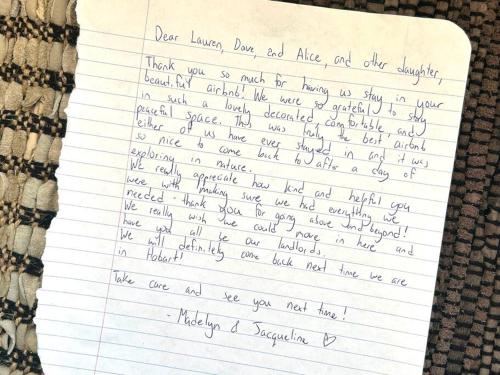 Dear Lauren, Dave, and Alice, and other daughter,
Thank you so much for having us stay in your
beautiful airbnb! We were so grateful to stay
in such a lovely decorated comfortable and
peaceful space. This was truly the best airbnb
either of us have ever stayed in and it was
so nice to come back to after a day of
exploring in nature.
We really appreciate how kind and helpful you
were with making sure we had everything we
needed - thank you for going above and beyond!
We really wish we could move in here and
have you all be our landlords.
We will definitely come back next time we are
in Hobart!
Take care and see you next time!
- Madelyn & Jacqueline ♡